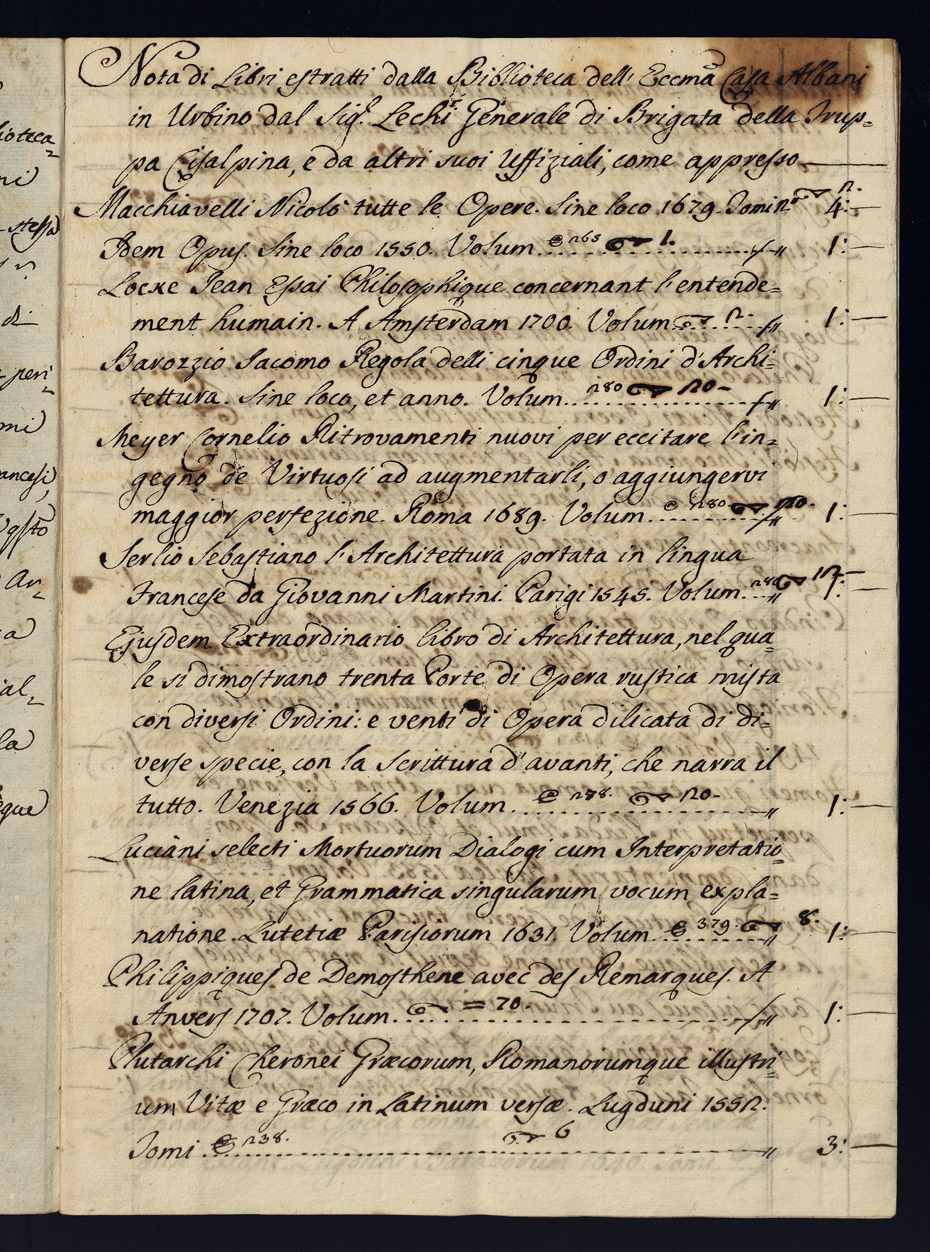 Nota di Libri estratti dalla Biblioteca dell' Eccma Casa Albani
in Urbino dal Sigr. Lechi Generale di Brigata della Trup=
pa Cisalpina, e da altri suoi Uffiziali, come appresso
Macchiavelli Nicolò tutte le Opere. Sine loco 1679. Tomi 4:
Idem Opus. Sine loco 1550. Volum. 1:
Locke Jean Essai Philosophique concernant l'entende=
ment humain. A Amsterdam 1700. Volum. 1:
Barozzio Jacomo Regola delli cinque Ordini d'Archi=
tettura. Sine loco, et anno. Volum. 1:
Meyer Cornelio Ritrovamenti nuovi per eccitare l'in=
gegno de Virtuosi ad augmentarli, o aggiungervi
maggior perfezione. Roma 1689. Volum. 1:
Serlio Sebastiano l'Architettura portata in lingua
Francese da Giovanni Martini. Parigi 1545. Volum. 1:
Ejusdem Extraordinario libro di Architettura, nel qua=
le si dimostrano trenta Porte di Opera rustica mista
con diversi Ordini: e venti di Opera dilicata di di=
verse specie, con la scrittura d'avanti, che narra il
tutto. Venezia 1566. Volum. 1:
Luciani selecti Mortuorum Dialogi cum Interpretatio=
ne latina, et Grammatica singularum vocum expla=
natione. Lutetiæ Parisiorum 1631. Volum. 379. 8. 1:
Philippiques de Demosthene avec des Remarques. A
Anvers 1707. Volum. = 70. 1:
Plutarchi Cheronei Græcorum, Romanorumque illustri=
um Vitæ e Græco in Latinum versæ. Lugduni 1552.
Tomi 238. 6 3: